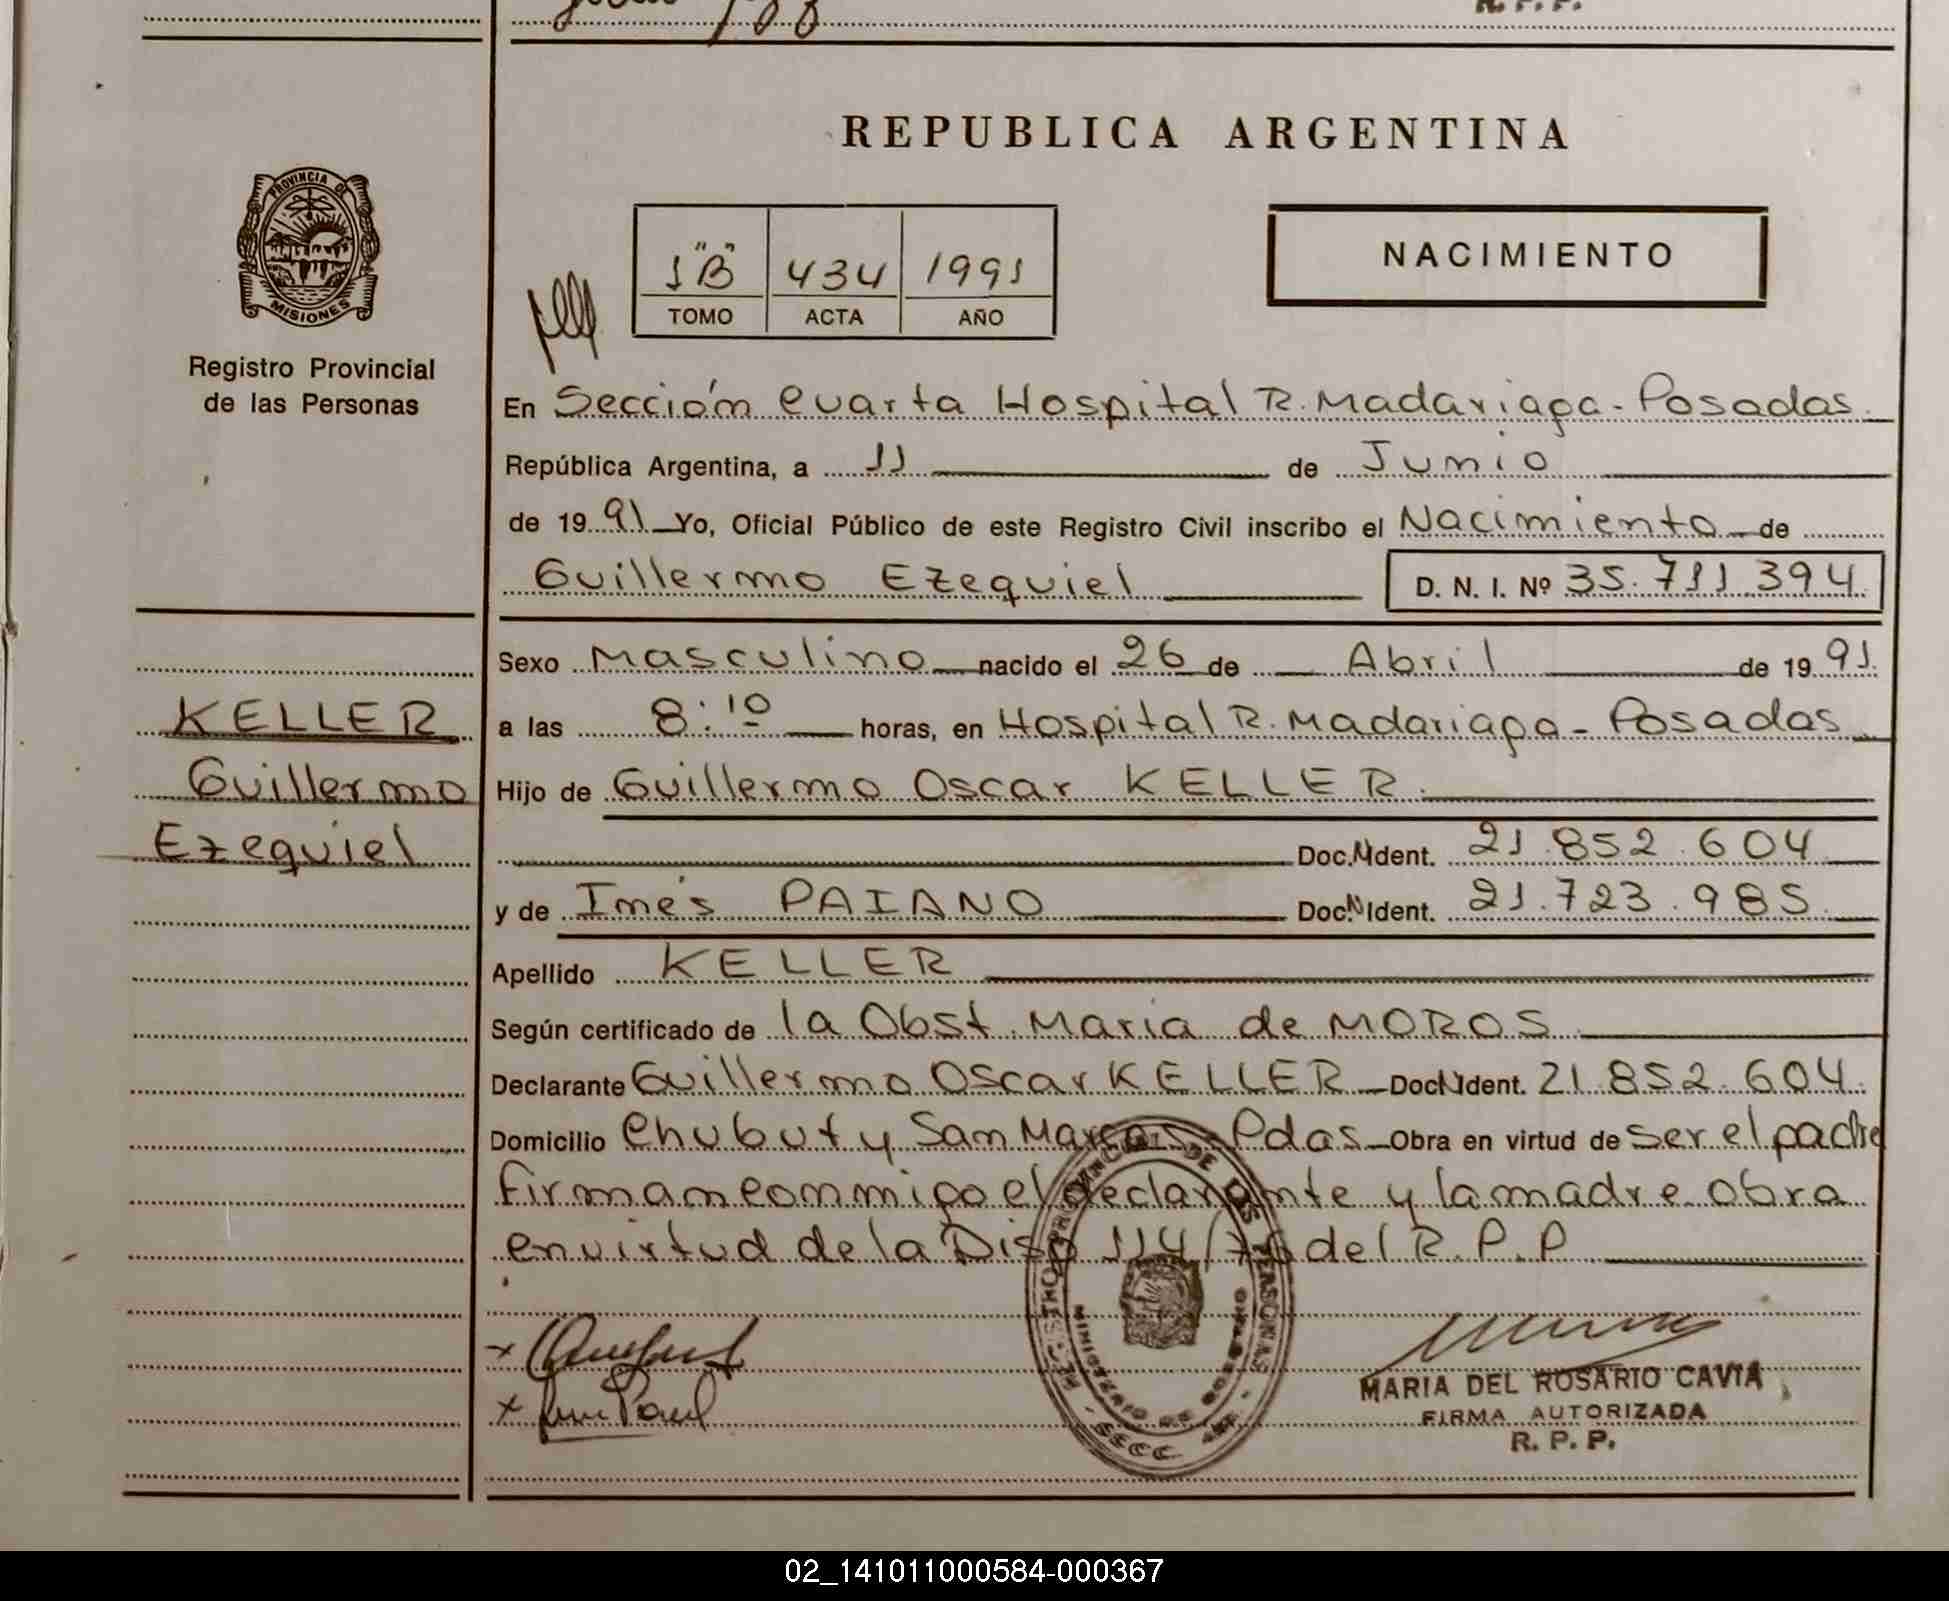 R.P.P.
REPUBLICA ARGENTINA
PROVINCIA DE
MISIONES
Registro Provincial
de las Personas
1"B" 434 1991
TOMO ACTA AÑO
NACIMIENTO
En Sección Cuarta Hospital R. Madariaga - Posadas
República Argentina, a 11 de Junio
de 1991 Yo, Oficial Público de este Registro Civil inscribo el Nacimiento de
Guillermo Ezequiel D. N. I. Nº 35.711.394
KELLER
Guillermo
Ezequiel
Sexo Masculino nacido el 26 de Abril de 1991
a las 8:10 horas, en Hospital R. Madariaga - Posadas
Hijo de Guillermo Oscar KELLER
Doc. N Ident. 21.852.604
y de Inés PAIANO Doc. N Ident. 21.723.985
Apellido KELLER
Según certificado de la Obst. Maria de MOROS
Declarante Guillermo Oscar KELLER Doc N Ident. 21.852.604
Domicilio Chubut y San Marcos - Pdas Obra en virtud de ser el padre
firman conmigo el declarante y la madre obra
en virtud de la Disp 114/76 del R.P.P
REGISTRO PROVINCIAL DE LAS PERSONAS
MINISTERIO DE GOBIERNO
MARIA DEL ROSARIO CAVIA
FIRMA AUTORIZADA
R. P. P.
02_141011000584-000367